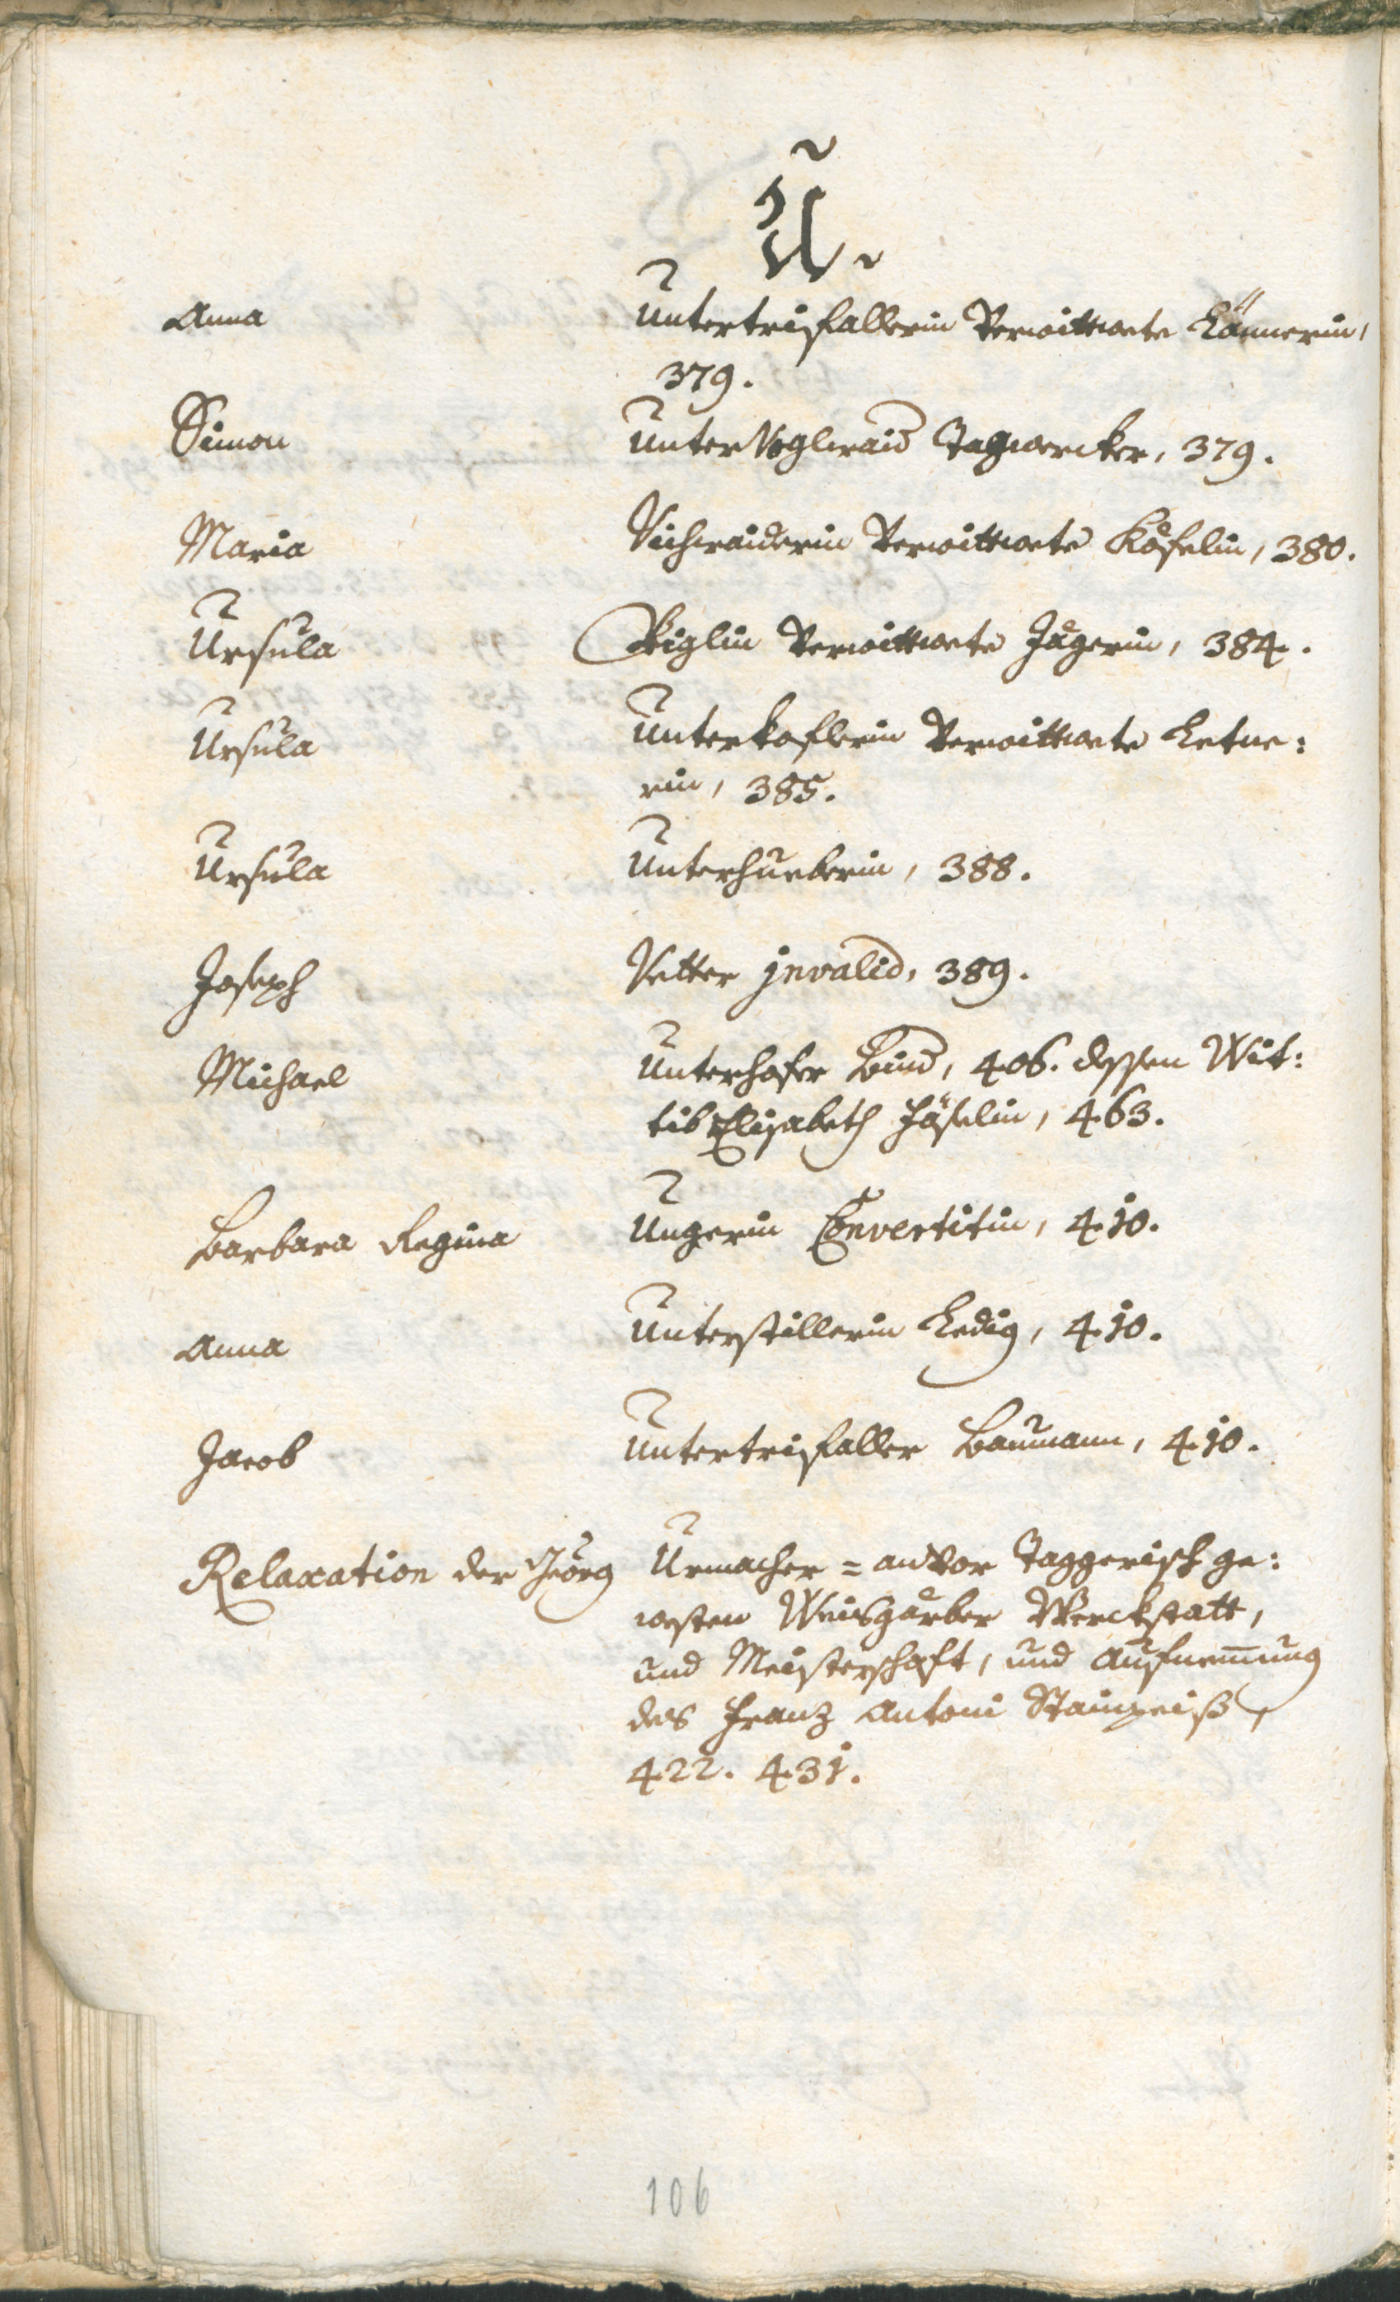 U.
Anna Untertrifallerin Verwittwete Lännerin,
379.
Simon Unter Veglwaid Tagwercker, 379.
Maria Vichwaiderin Verwittwete Kößelin, 380.
Ursula Viglin Verwittwete Jägerin, 384.
Ursula Unterkoflerin Verwittwete Letne:
rin, 385.
Ursula Unterhueberin, 388.
Joseph Vetter jnvalid, 389.
Michael Unterhofer Bind, 406. dessen Wit:
tib Elisabeth Häßelin, 463.
Barbara Regina Ungerin Convertitin, 410.
Anna Unterstillerin Ledig, 410.
Jacob Untertrifaller Baumann, 410.
Relaxation der Georg Urmacher = anvor Taggerisch ge:
westen Weisgärber Werckstatt,
und Meisterschafft, und Aufnemung
des Franz Antoni Stainpeiß,
422. 431.
106